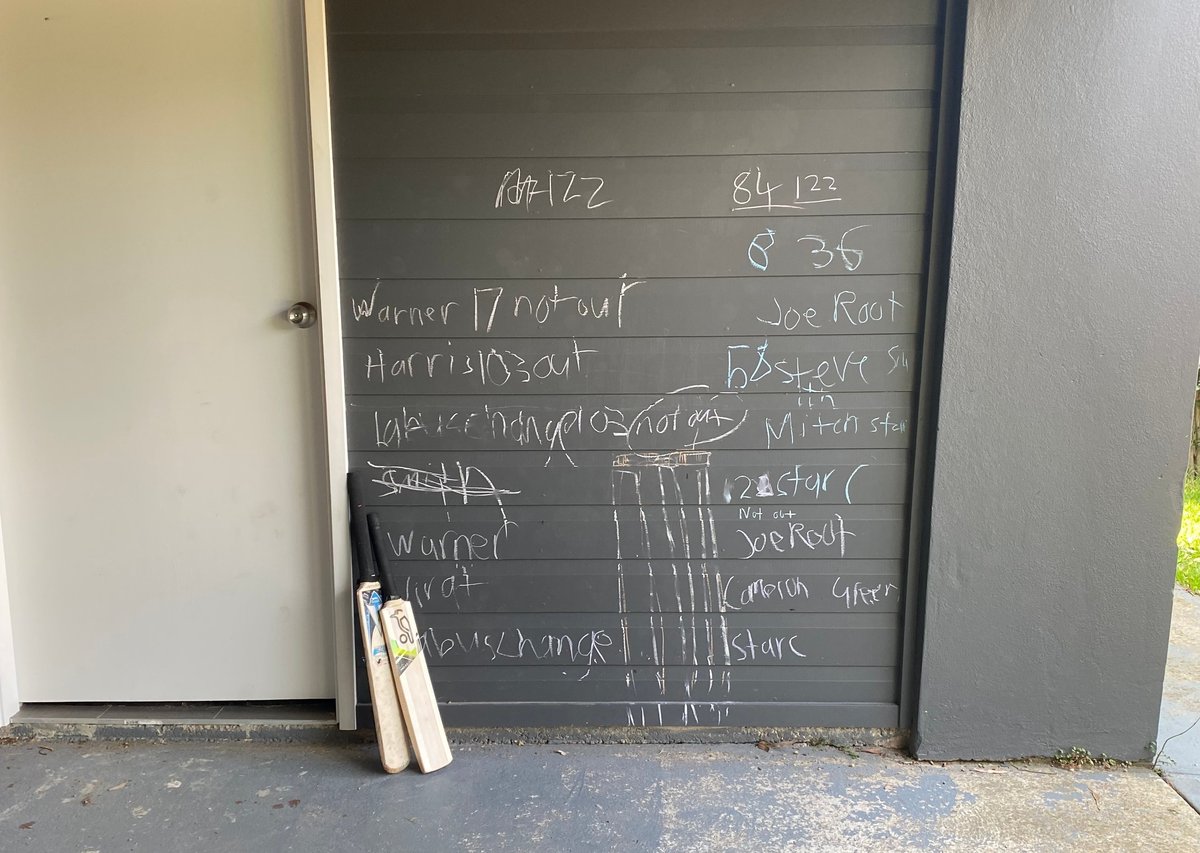 122
84 122
8 36
Warner 17 not out
Joe Root
Harris 103 out
58 steve Smith
Labuschange 103 not out
Mitch starc
Smith
starc
Not out
Warner
Joe Root
Virat
Cameron Green
abuschange
starc